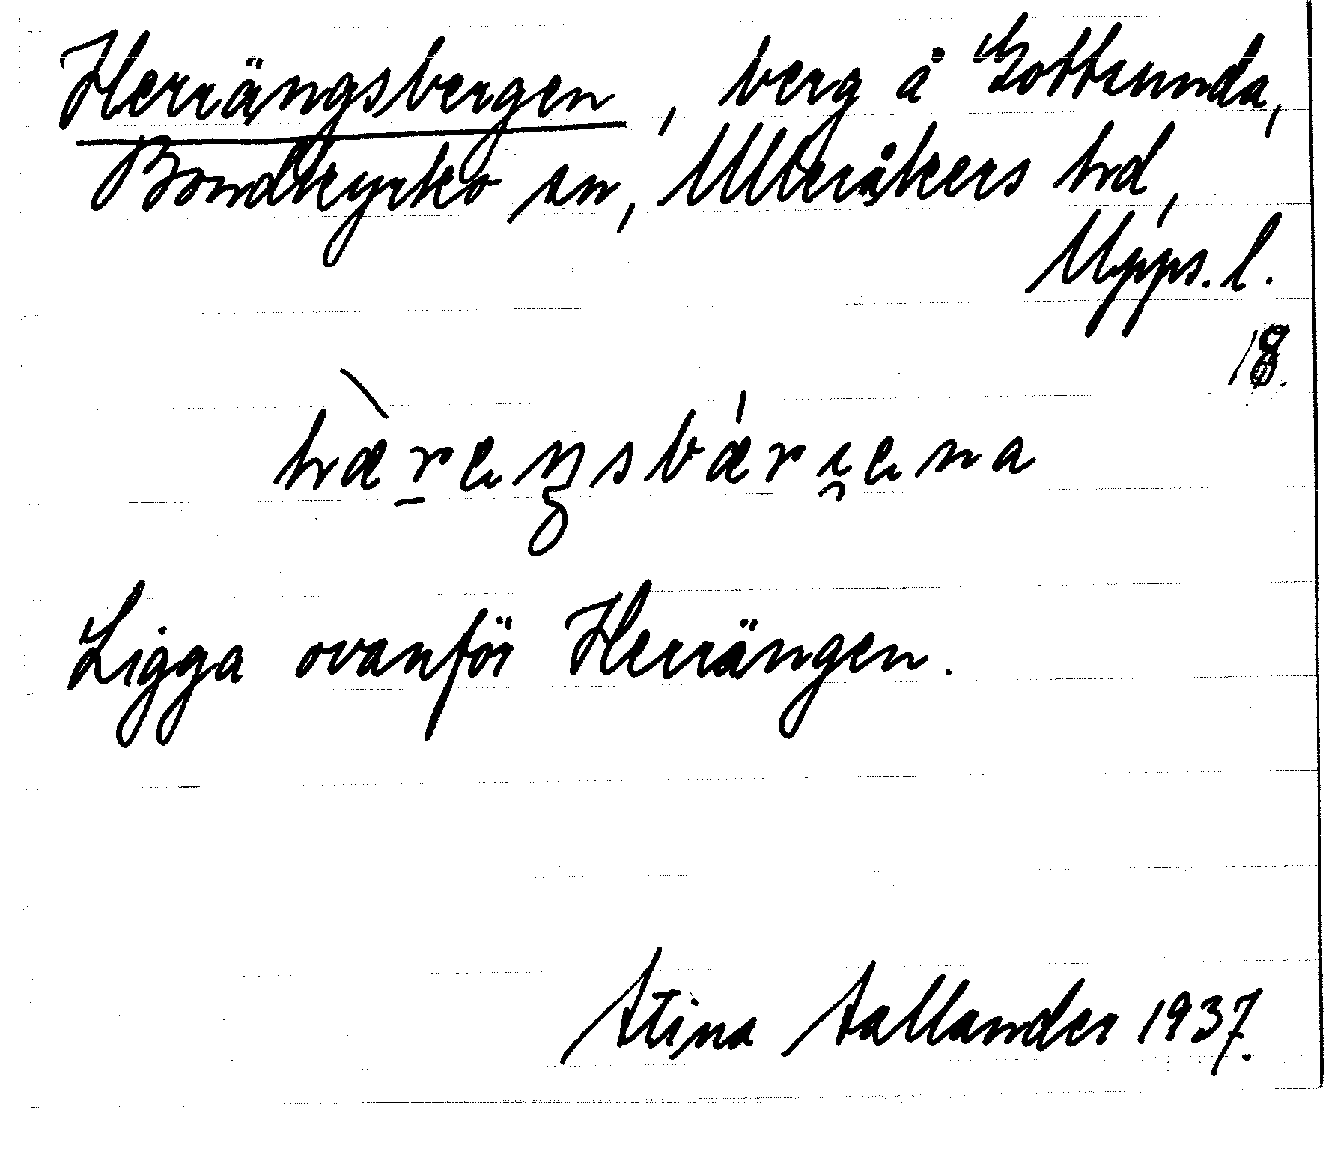 Herrängsbergen, berg å Gottsunda,
Bondkyrko sn, Ulleråkers hd,
Upps. l.
18.
hæ̀rеŋsbǽri̯ena
Ligga ovanför Herrängen.
Stina Sallander 1937.